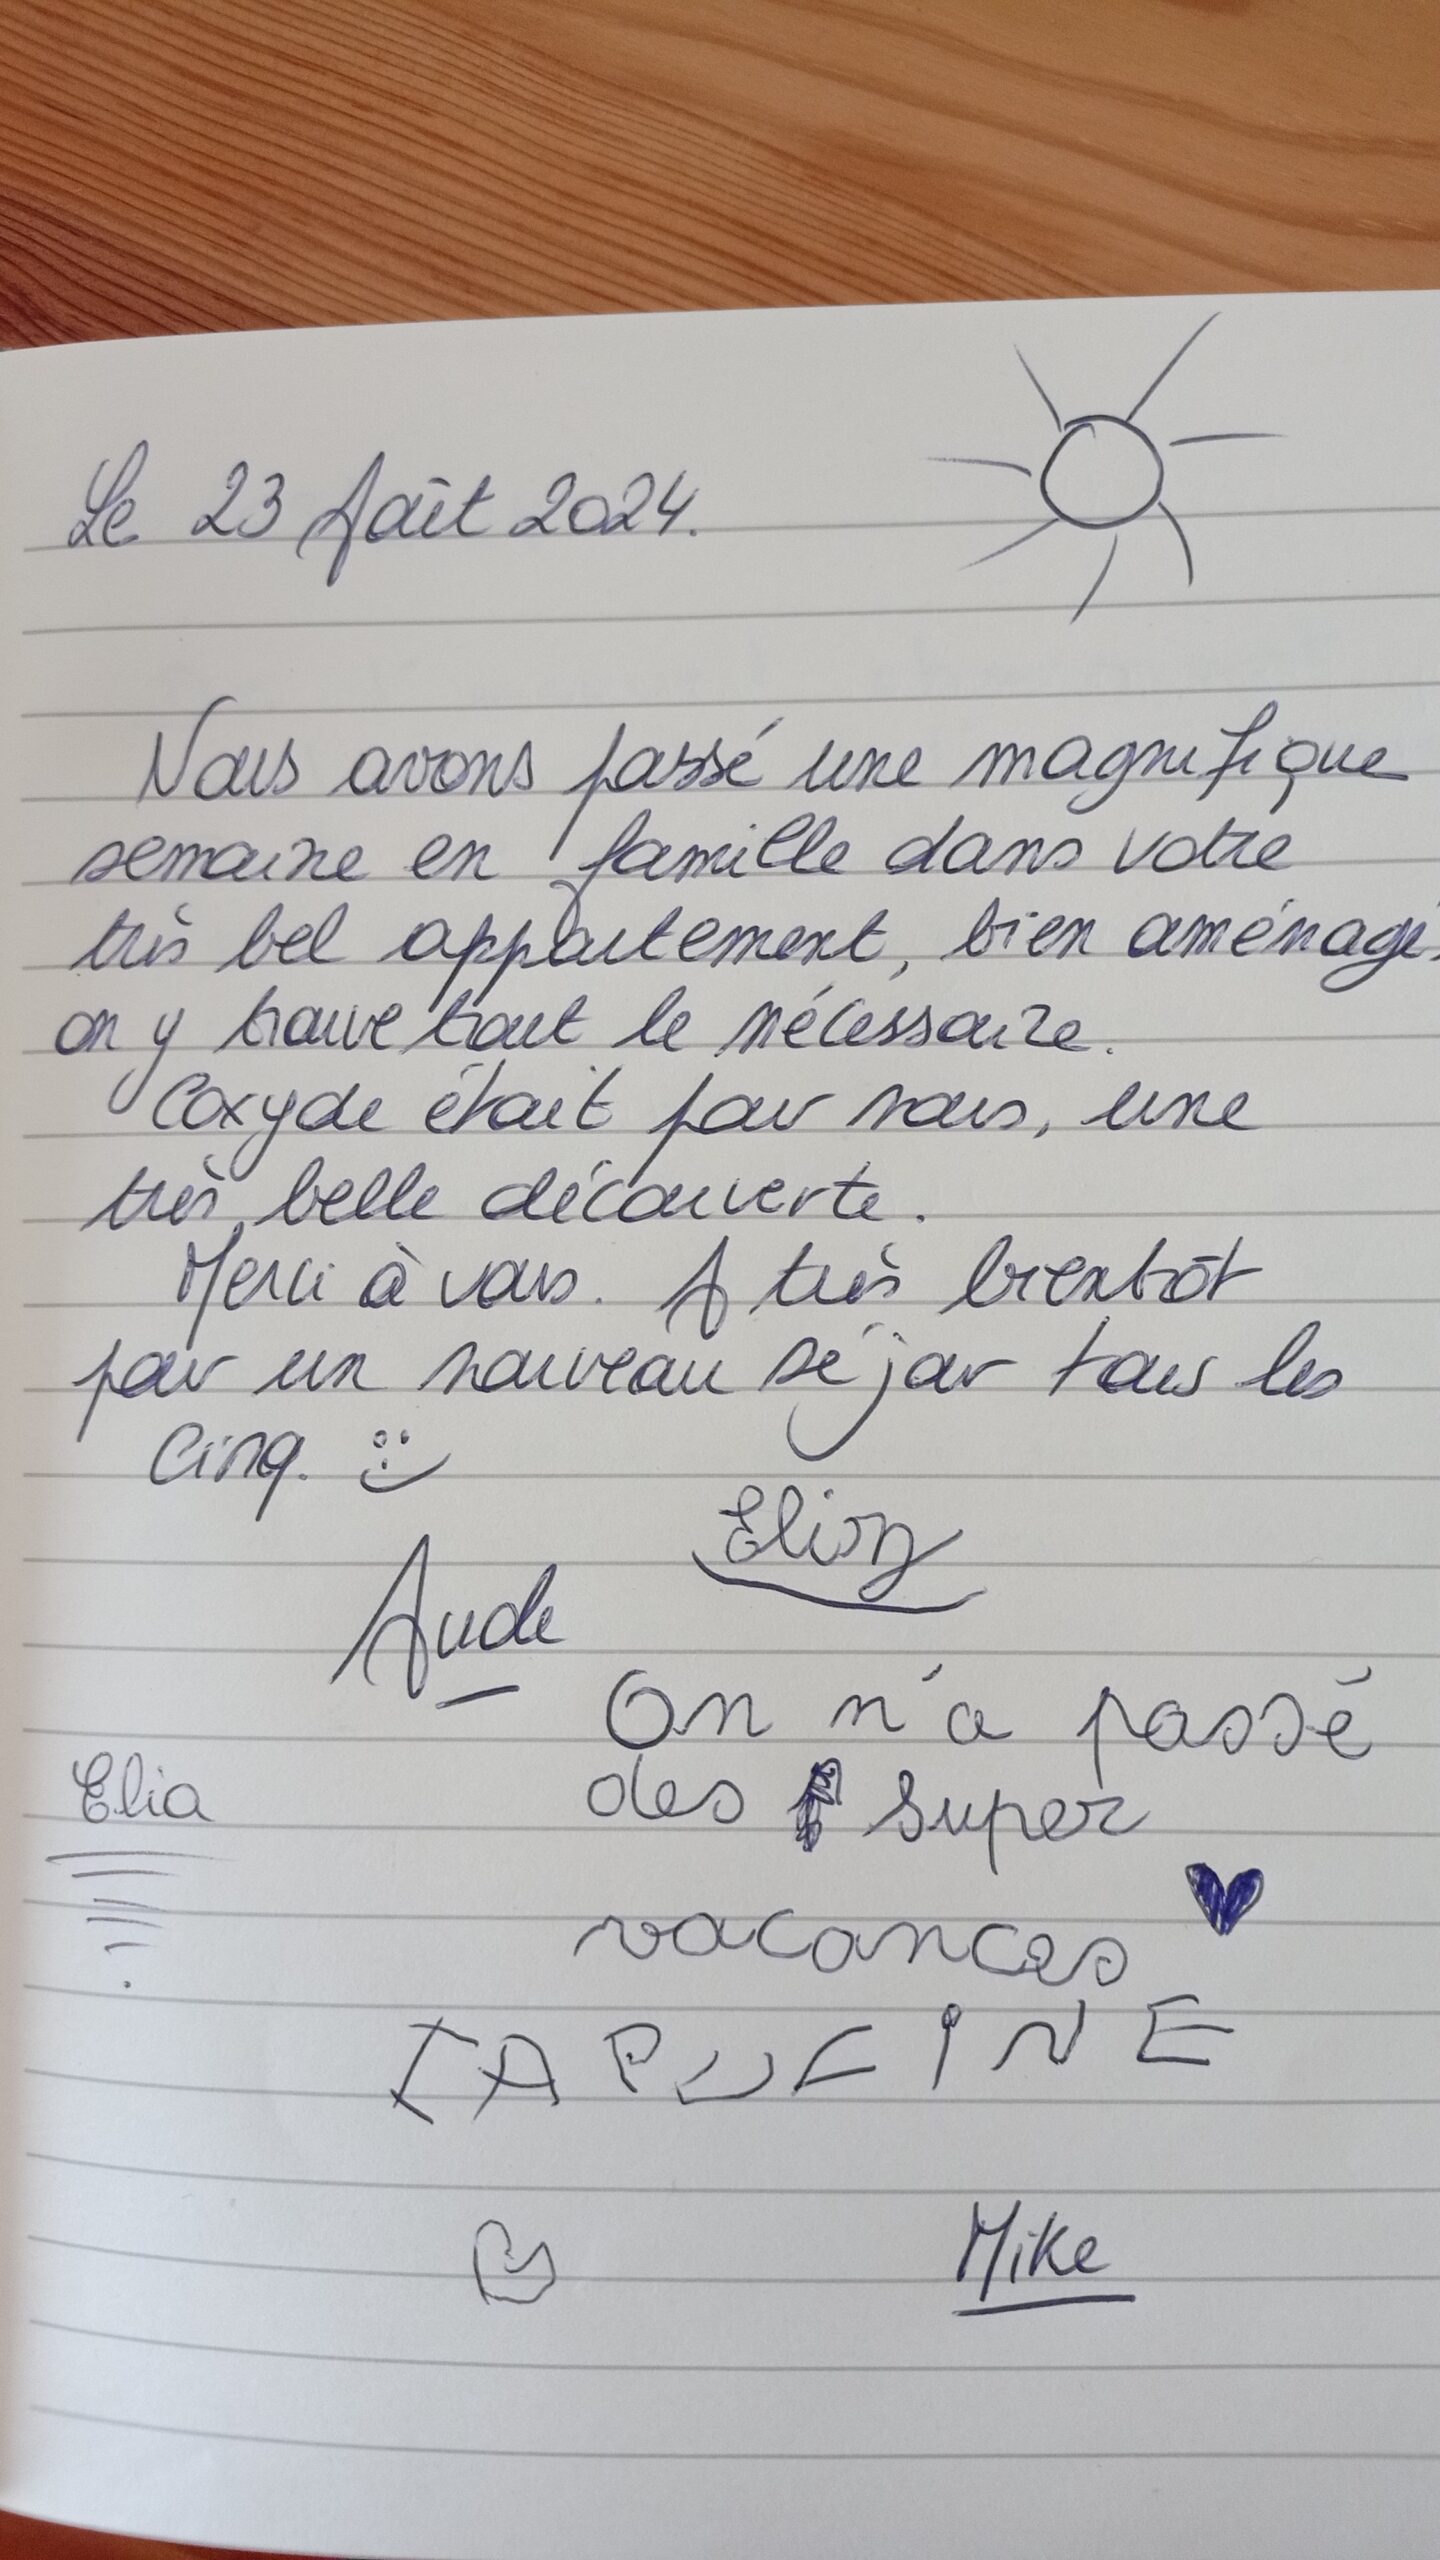 Le 23 Août 2024.
Nous avons passé une magnifique
semaine en famille dans votre
très bel appartement, bien aménagé,
on y trouve tout le nécessaire.
Coxyde était pour nous, une
très belle découverte.
Merci à vous. A très bientôt
pour un nouveau séjour tous les
cinq. :)
Elion
Aude
On n'a passé
des super
Elia
vacances
CAPUCINE
Mike